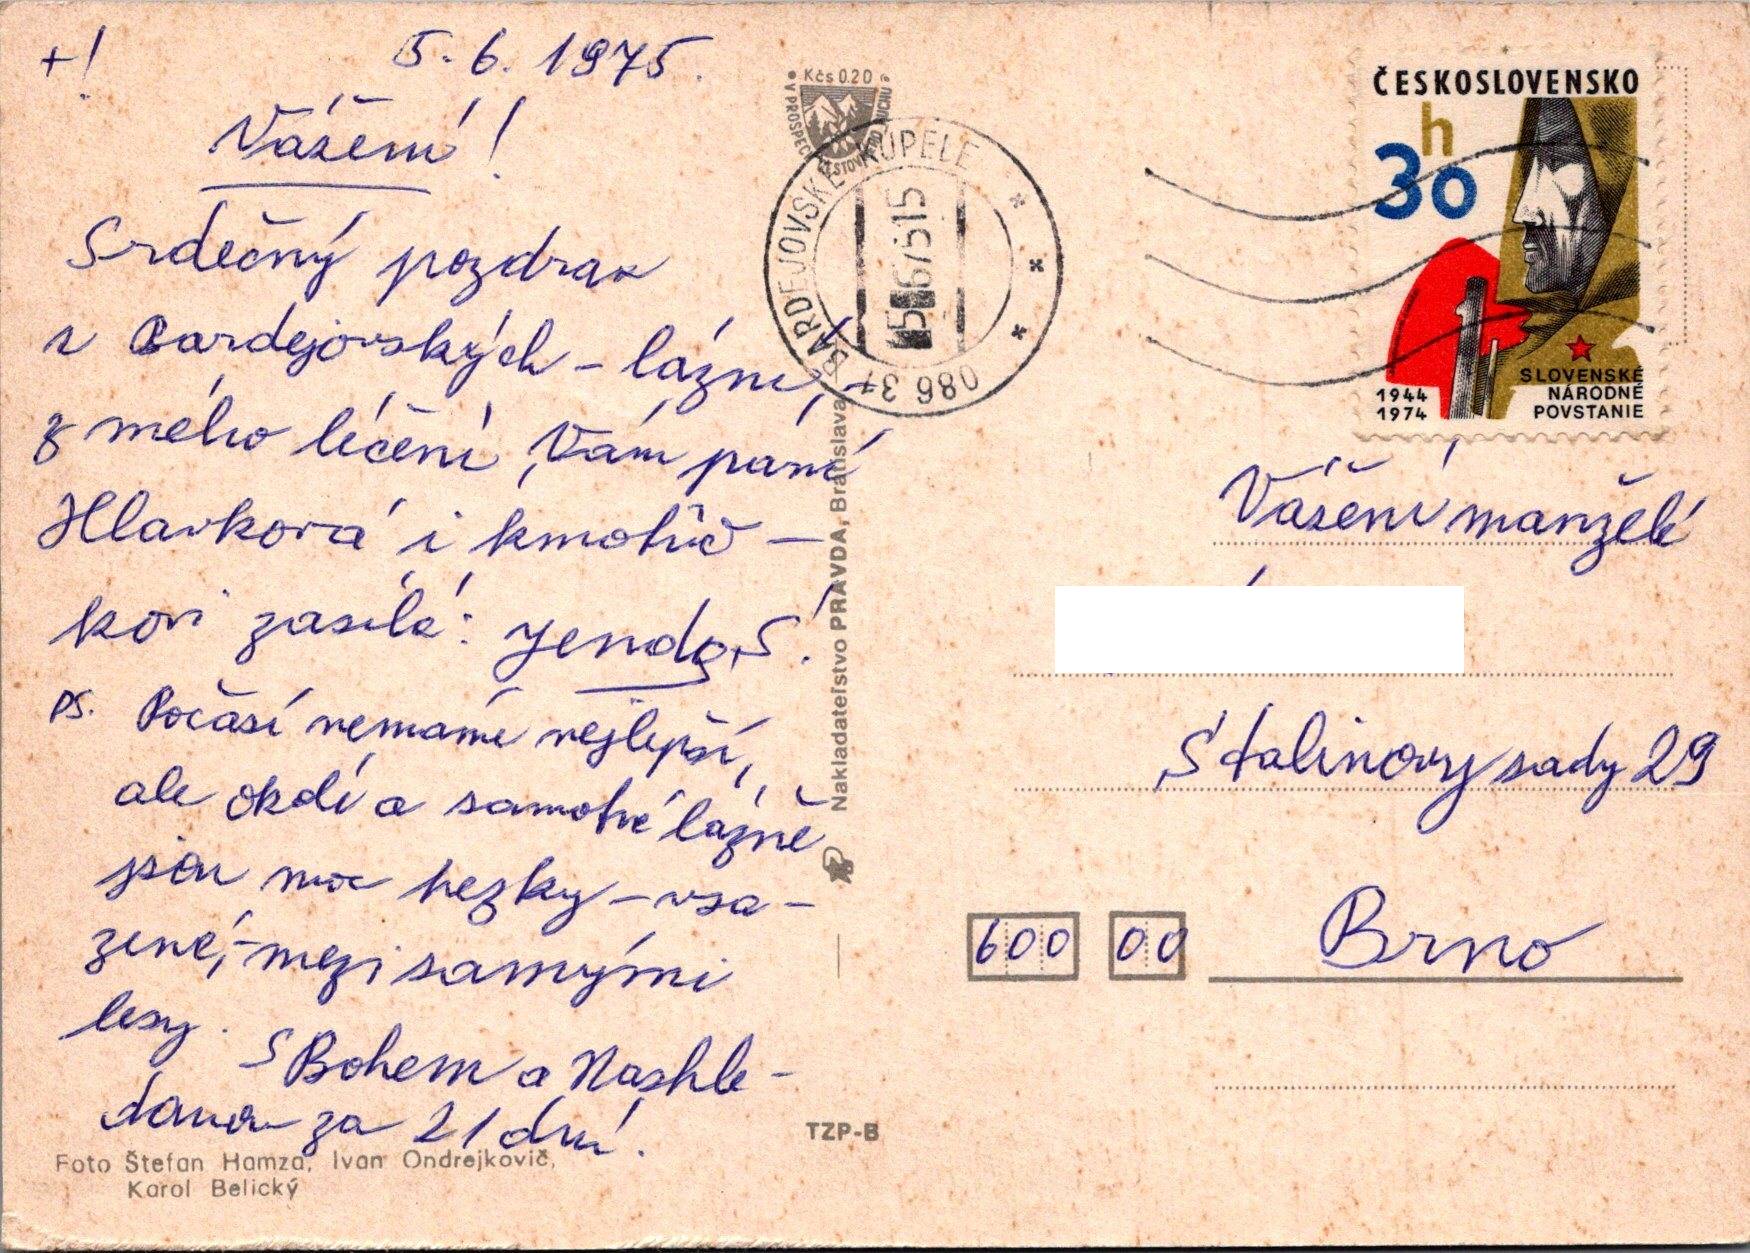 +! 5.6.1975.
Vážení!
Srdečný pozdrav
z Bardejovských-lázní,-
z mého léčení, Vám paní
Hlavková i kmotříč-
kovi zasílá: Jenda Š!
PS. Počasí nemáme nejlepší,
ale okolí a samotné lázně
jsou moc hezky-vsa-
zené,-mezi samými
lesy.
S Bohem a Nashle-
danou za 21 dní.
Foto Štefan Hamza, Ivan Ondrejkovič,
Karol Belický
TZP-B
Nakladateľstvo PRAVDA, Bratislava
Kčs 0.20
V PROSPECH CESTOVNÉHO RUCHU
BARDEJOVSKÉ KÚPELE
086 31
ČESKOSLOVENSKO
30 h
1944
1974
SLOVENSKÉ
NÁRODNÉ
POVSTANIE
Vážení manželé
Stalinovy sady 29
600 00 Brno